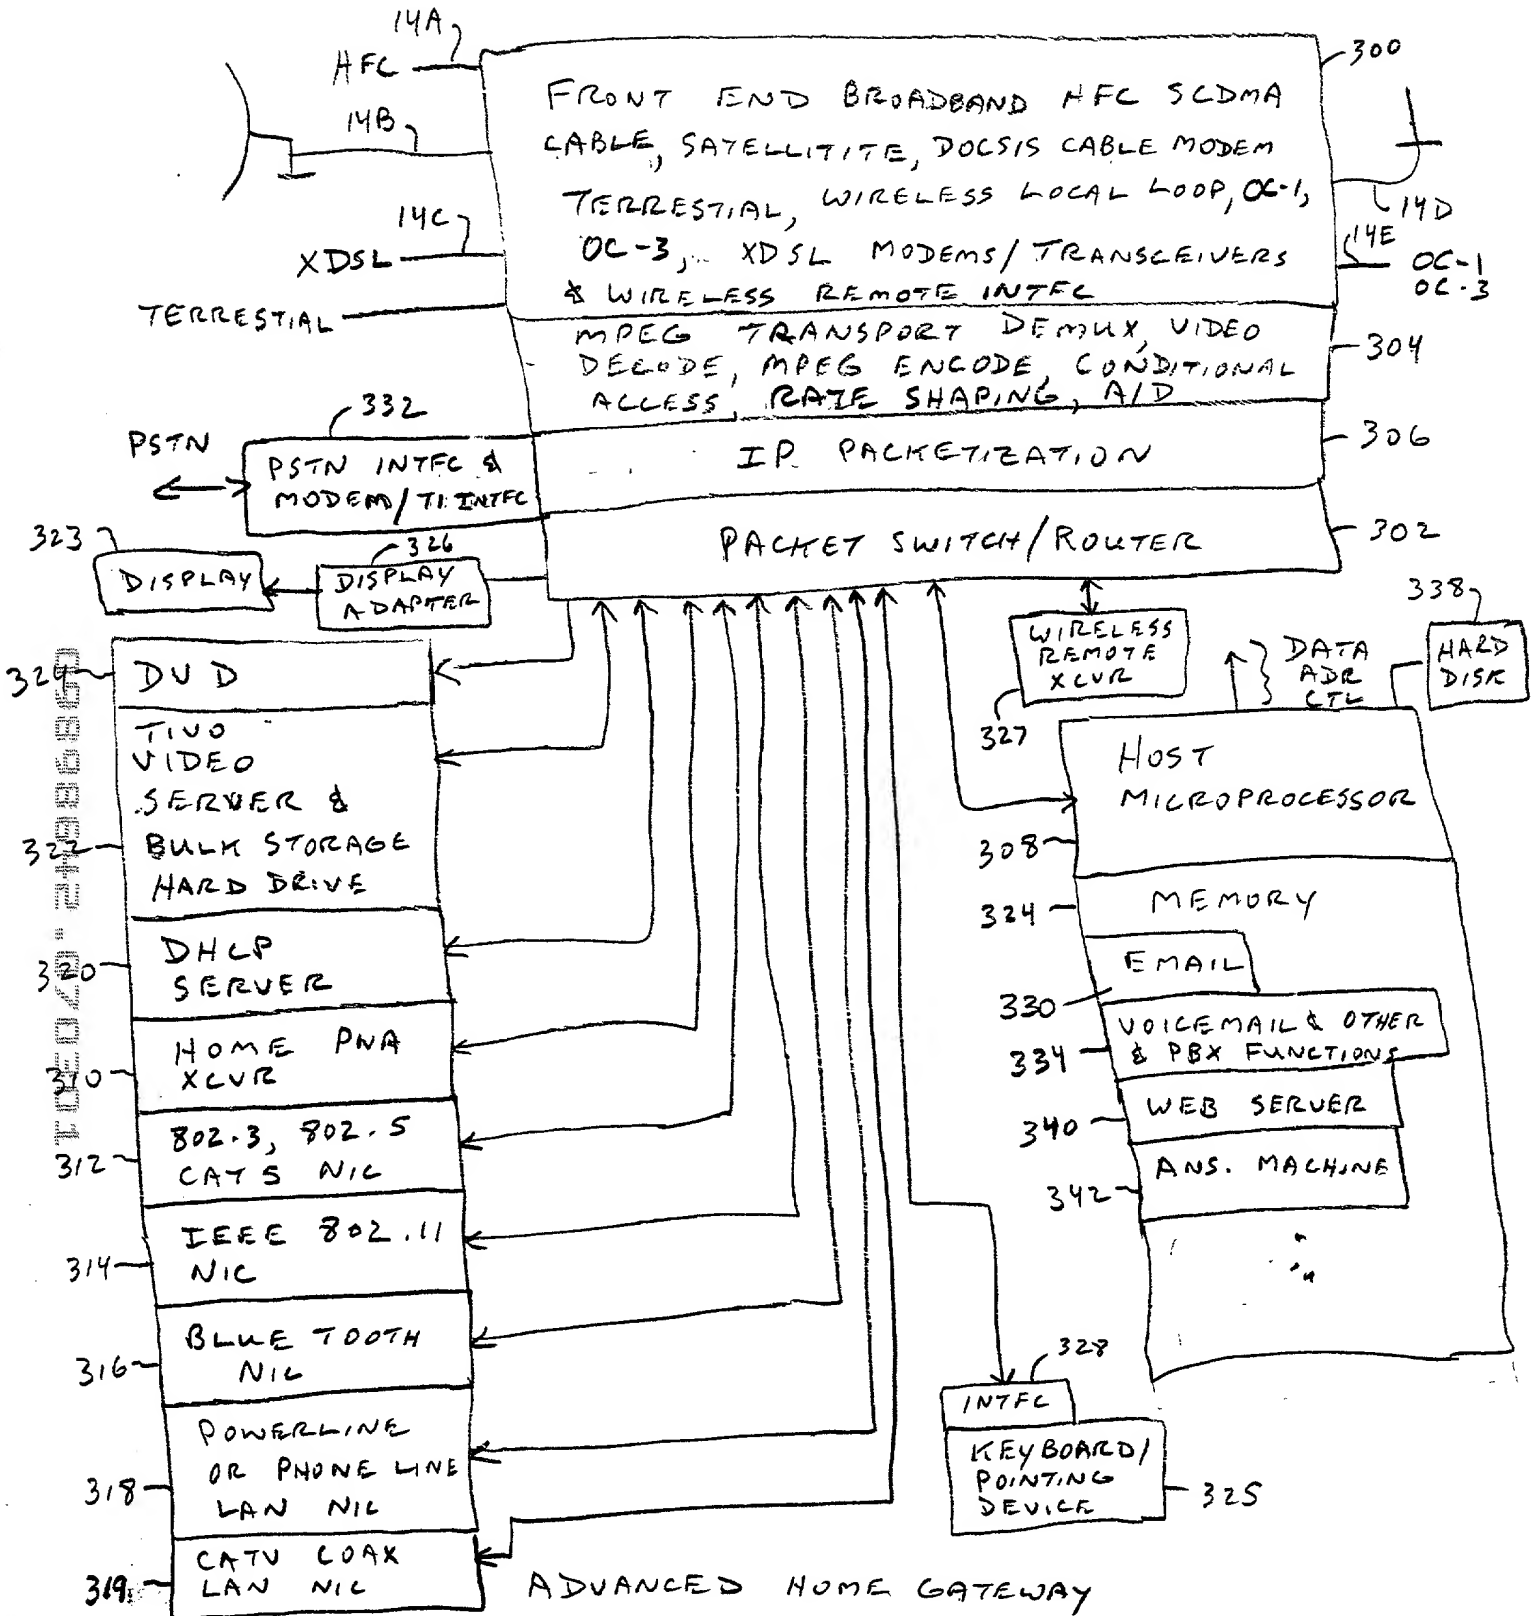 14A
HFC
300
FRONT END BROADBAND HFC SCDMA
CABLE, SATELLITITE, DOCSIS CABLE MODEM
TERRESTIAL, WIRELESS LOCAL LOOP, OC-1,
OC-3, XDSL MODEMS/TRANSCEIVERS
& WIRELESS REMOTE INTFC
14B
14C
XDSL
TERRESTIAL
14D
14E
OC-1
OC-3
MPEG TRANSPORT DEMUX, VIDEO
DECODE, MPEG ENCODE, CONDITIONAL
ACCESS, RATE SHAPING, A/D
304
332
PSTN
PSTN INTFC &
MODEM/T1 INTFC
IP PACKETIZATION
306
PACKET SWITCH/ROUTER
302
323
DISPLAY
326
DISPLAY
ADAPTER
WIRELESS
REMOTE
XCVR
327
DATA
ADR
CTL
338
HARD
DISK
DVD
324
TIVO
VIDEO
SERVER &
BULK STORAGE
HARD DRIVE
322
DHCP
SERVER
320
HOME PNA
XCVR
310
802.3, 802.5
CAT 5 NIC
312
IEEE 802.11
NIC
314
BLUE TOOTH
NIC
316
POWERLINE
OR PHONE LINE
LAN NIC
318
CATV COAX
LAN NIC
319
HOST
MICROPROCESSOR
308
MEMORY
324
EMAIL
330
VOICEMAIL & OTHER
& PBX FUNCTIONS
334
WEB SERVER
340
ANS. MACHINE
342
328
INTFC
KEYBOARD/
POINTING
DEVICE
325
ADVANCED HOME GATEWAY